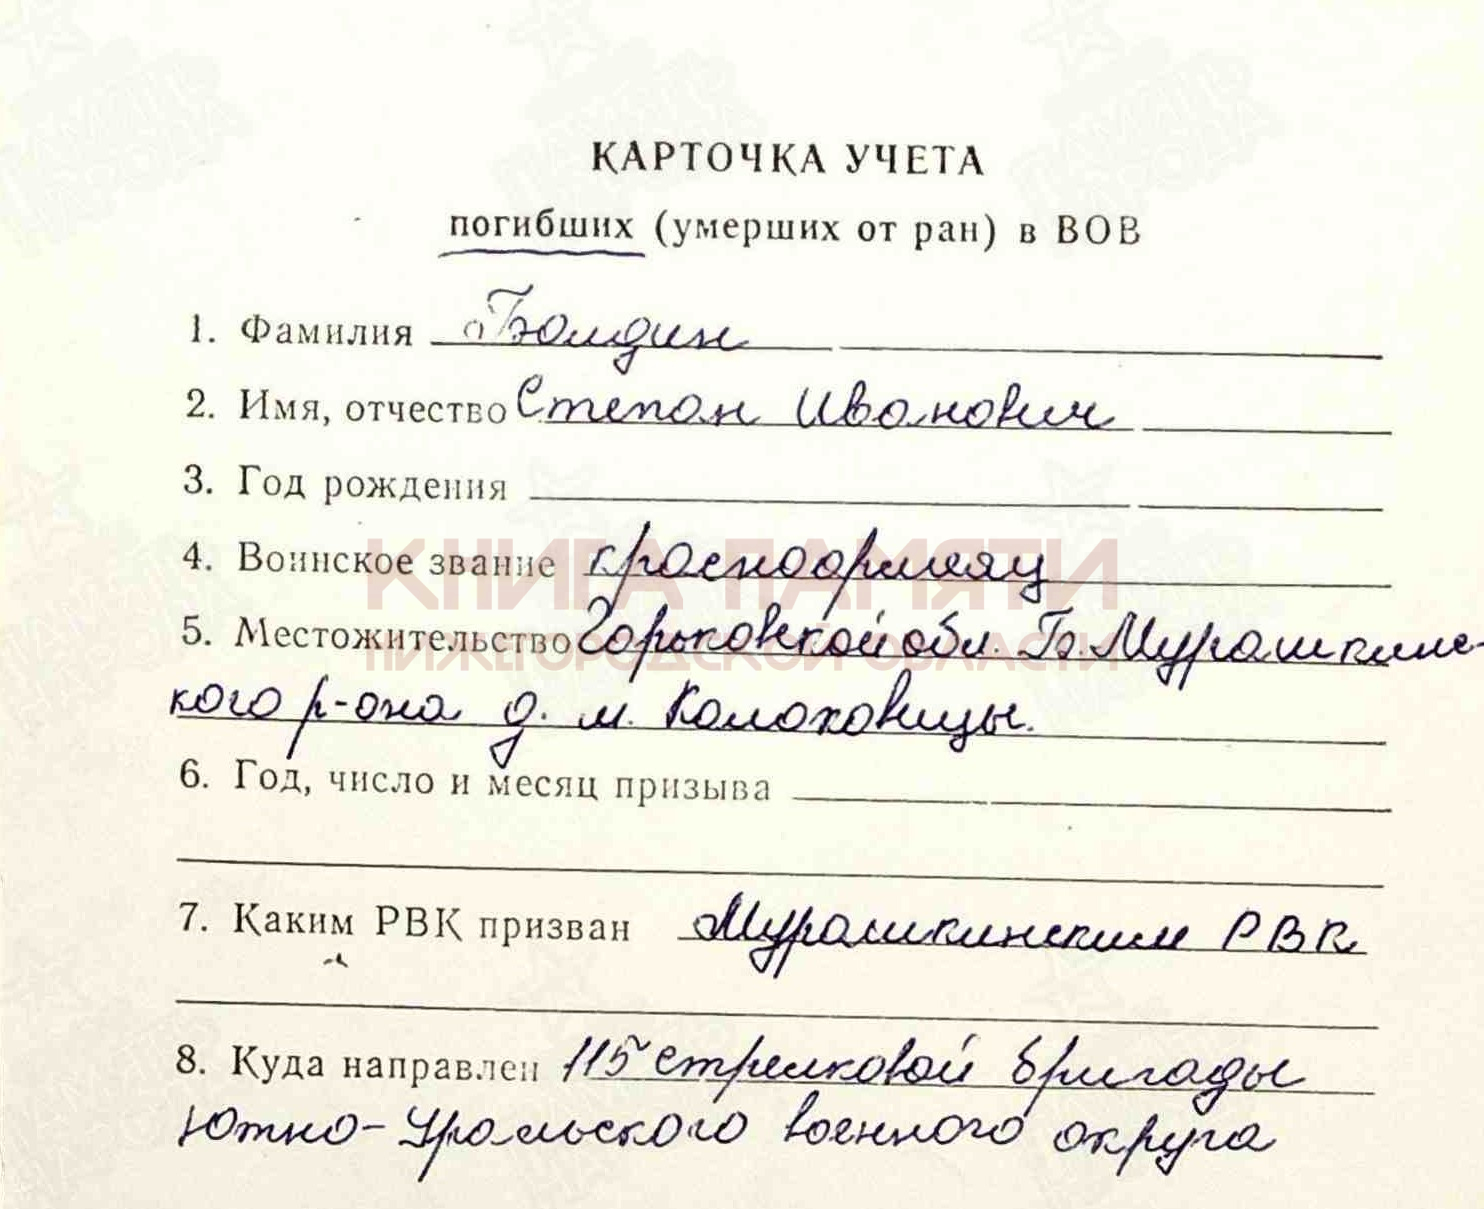 КАРТОЧКА УЧЕТА
погибших (умерших от ран) в ВОВ
1. Фамилия Болдин
2. Имя, отчество Степан Иванович
3. Год рождения
4. Воинское звание красноармеец
КНИГА ПАМЯТИ
5. Местожительство Горьковской обл. Б. Мурашкинс-
НИЖЕГОРОДСКОЙ ОБЛАСТИ
кого р-она д. м. Колоковицы.
6. Год, число и месяц призыва
7. Каким РВК призван Мурашкинским РВК
8. Куда направлен 115 стрелковой бригады
Южно-Уральского военного округа